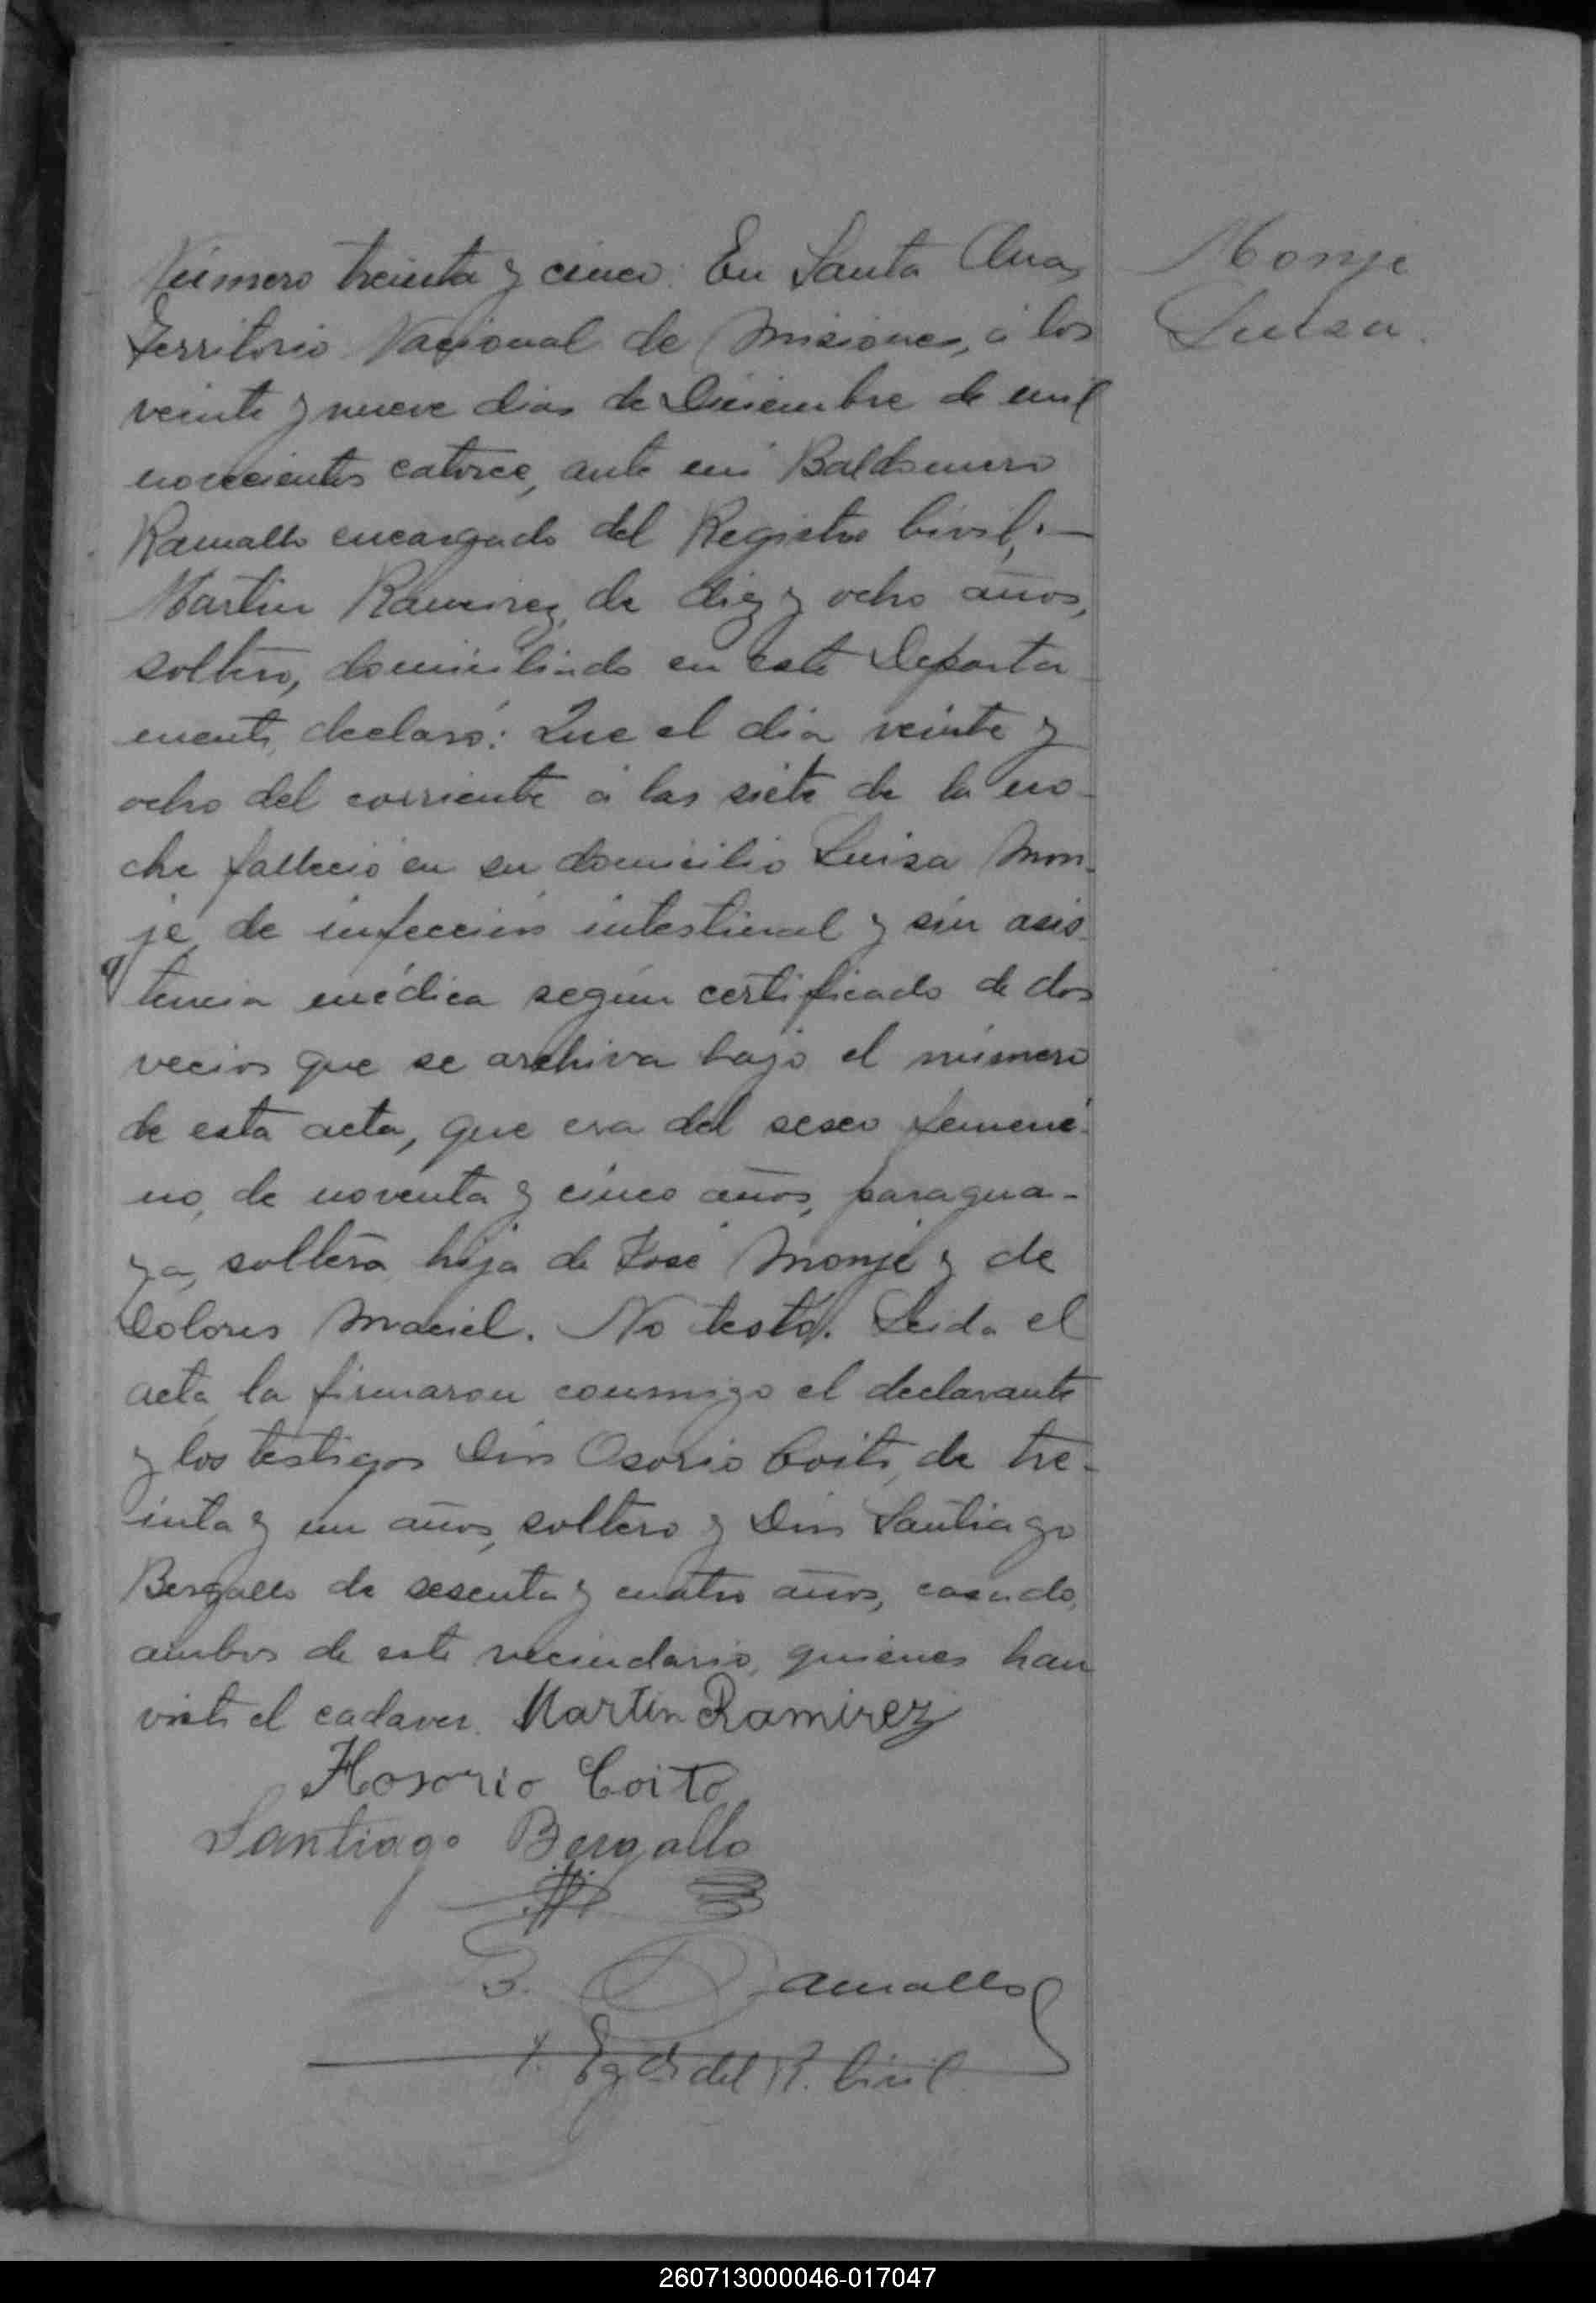 Número treinta y cinco. En Santa Ana,
Territorio Nacional de Misiones, á los
veinte y nueve dias de Diciembre de mil
novecientos catorce, ante mi Baldomero
Ramallo encargado del Registro Civil, .—
Martin Ramirez, de diez y ocho años,
soltero, domiciliado en este Departa
mento, declaró: Que el dia veinte y
ocho del corriente á las siete de la no-
che falleció en su domicilio Luisa Mon-
je, de infección intestinal y sin asis-
tencia médica según certificado de dos
vecios que se archiva bajo el número
de esta acta, que era del sexo femeni-
no, de noventa y cinco años, paragua-
ya, soltera, hija de José Monje y de
Dolores Maciel. No testó. Leida el
acta, la firmaron conmigo el declarante
y los testigos Don Osorio Coito, de tre-
inta y un años, soltero y Don Santiago
Bergallo de sesenta y cuatro años, casado,
ambos de este vecindario, quienes han
visto el cadaver. Martin Ramirez
Hosorio Coito
Santiago Bergallo
B. Ramallo
Egdo del R. Civil
Monje
Luisa.
260713000046-017047